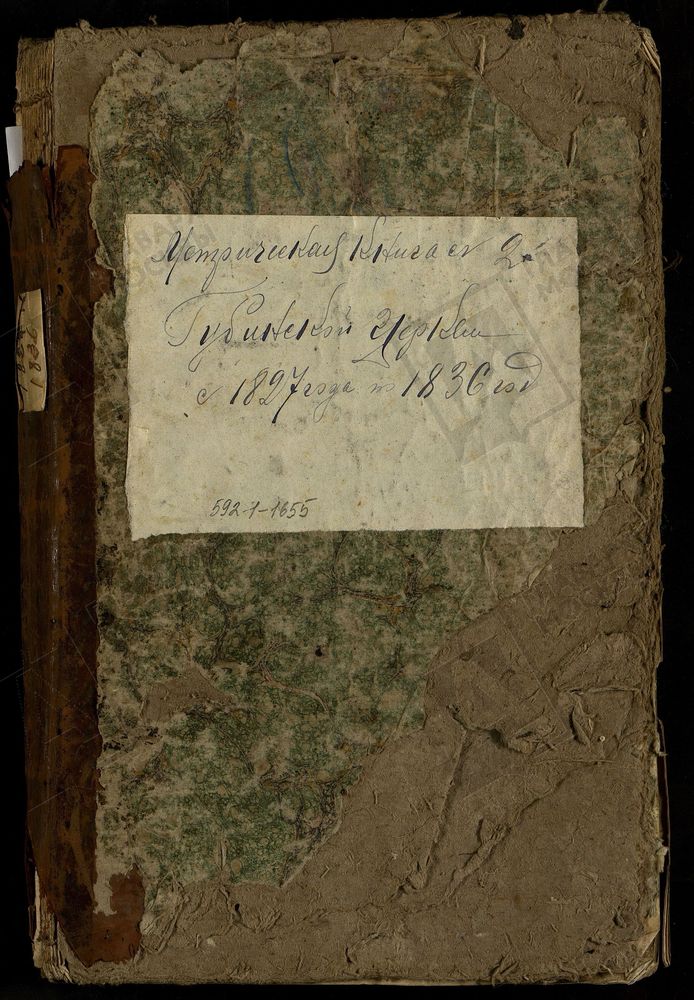 Метрическая книга
Губинской Церкви
с 1827 года по 1836 год
592-1-1655
1836